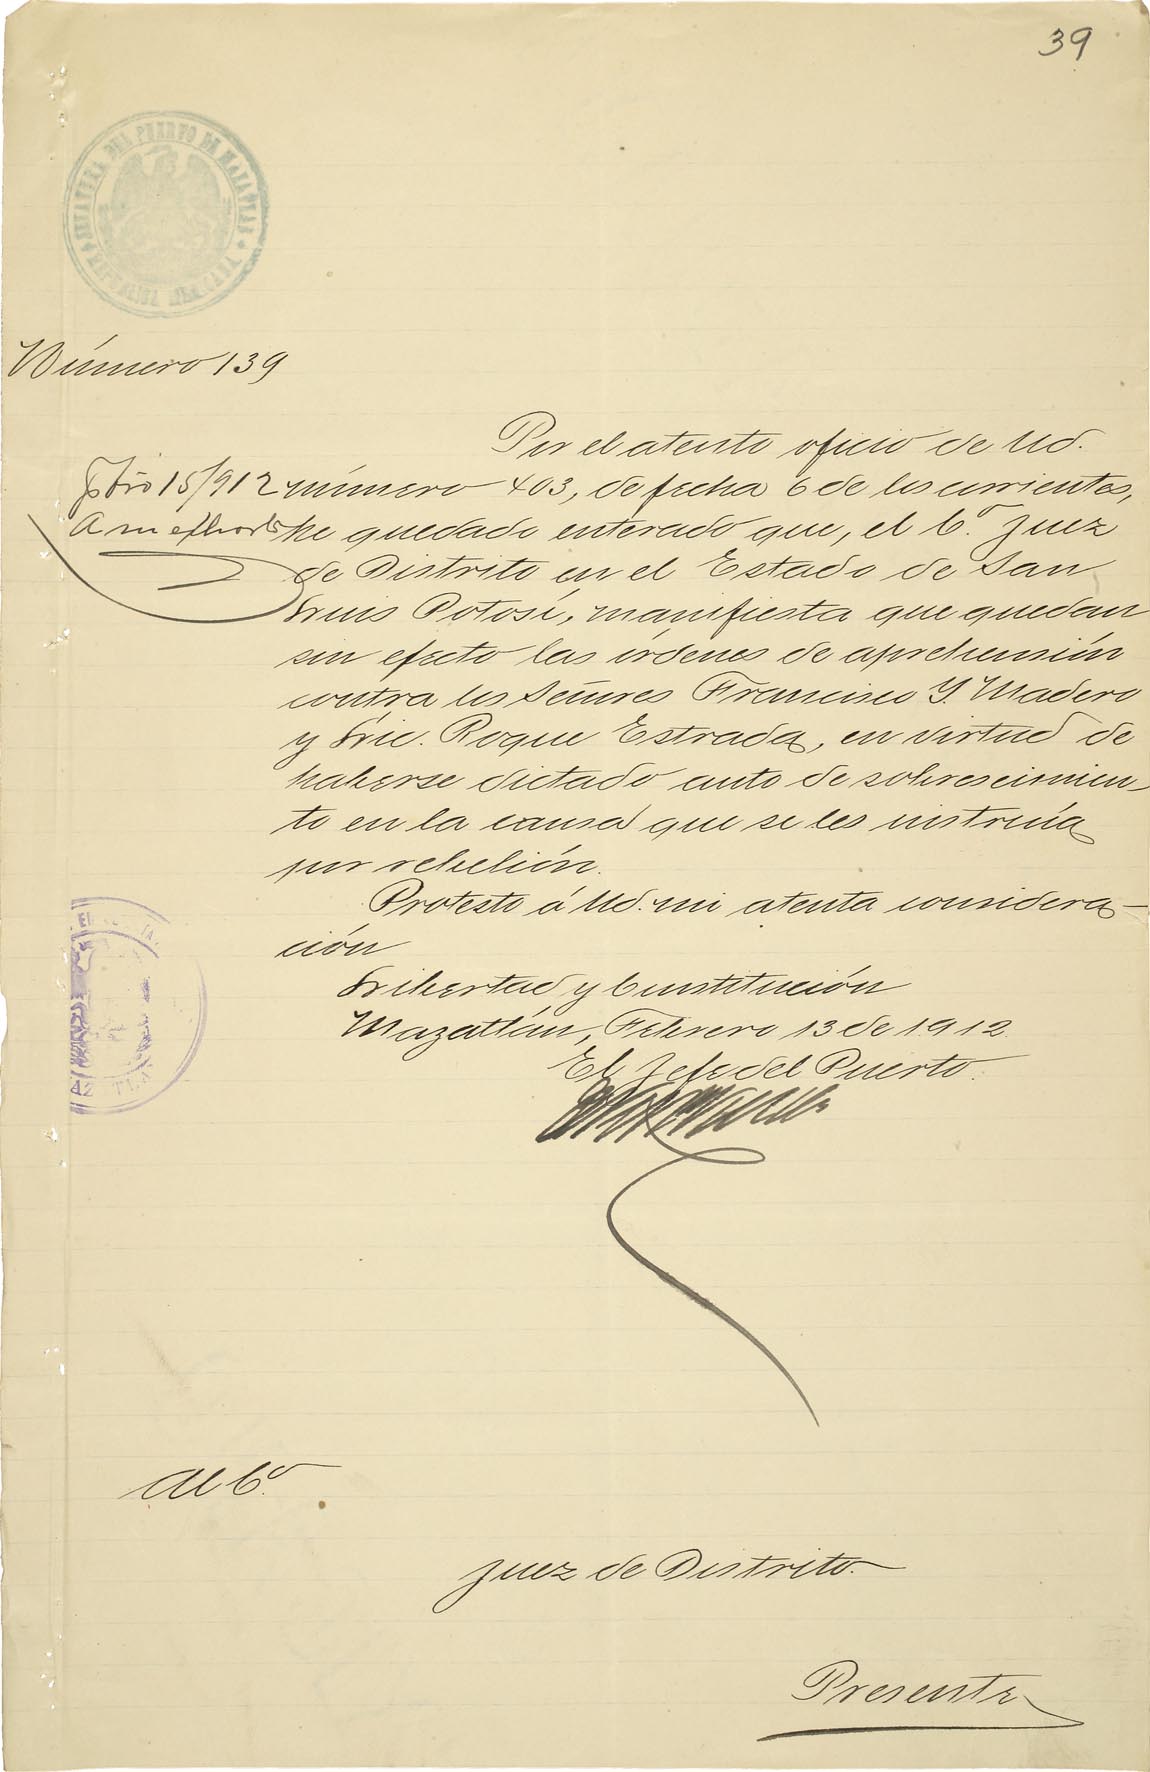 39
JEFATURA DEL PUERTO DE MAZATLAN
REPUBLICA MEXICANA
Número 139
Por el atento oficio de Ud.
número 403, de fecha 6 de los corrientes,
he quedado enterado que, el C. Juez
de Distrito en el Estado de San
Luis Potosí, manifiesta que quedan
sin efecto las órdenes de aprehensión
contra los Señores Francisco Y. Madero
y Lic. Roque Estrada, en virtud de
haberse dictado auto de sobreseimien-
to en la causa que se les instruía
por rebelión.
Protesto á Ud. mi atenta considera-
ción
Libertad y Constitución
Mazatlán, Febrero 13 de 1912
El Jefe del Puerto.
15/912
Al C.
Juez de Distrito.
Presente